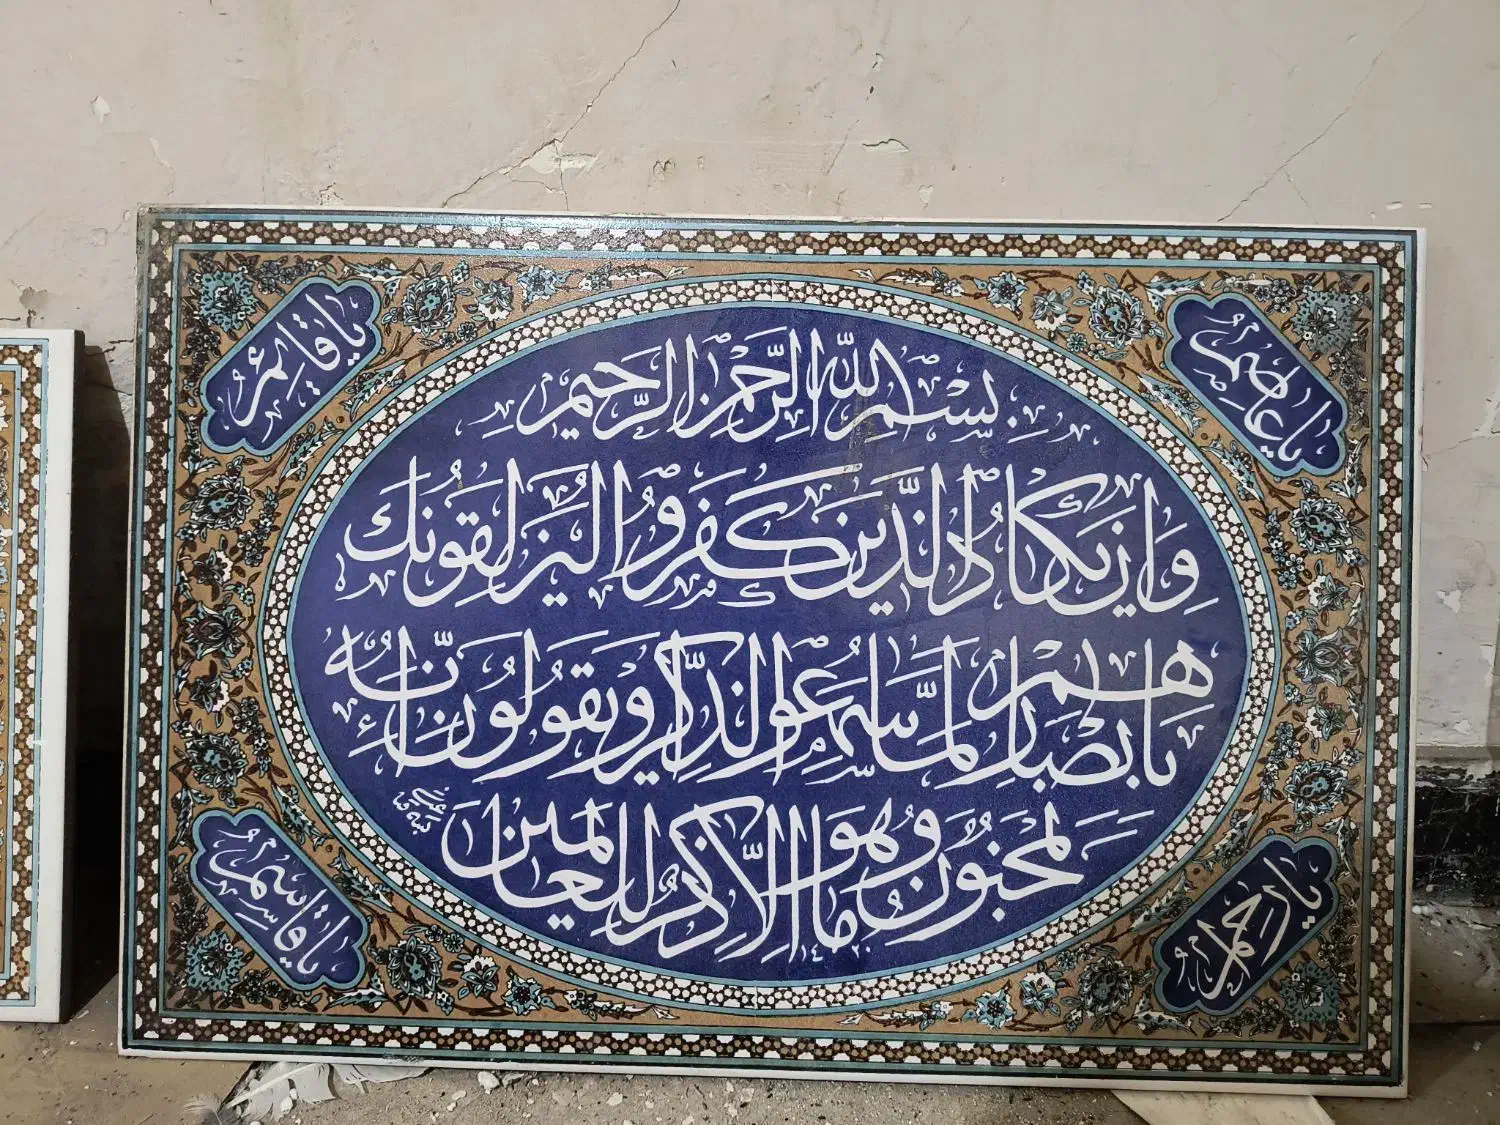 يا عاصم
يا قائم
بسم الله الرحمن الرحيم
وان يكاد الذين كفروا ليزلقونك
بابصارهم لما سمعوا الذكر ويقولون انه
لمجنون وما هو الا ذكر للعالمين
يا قاسم